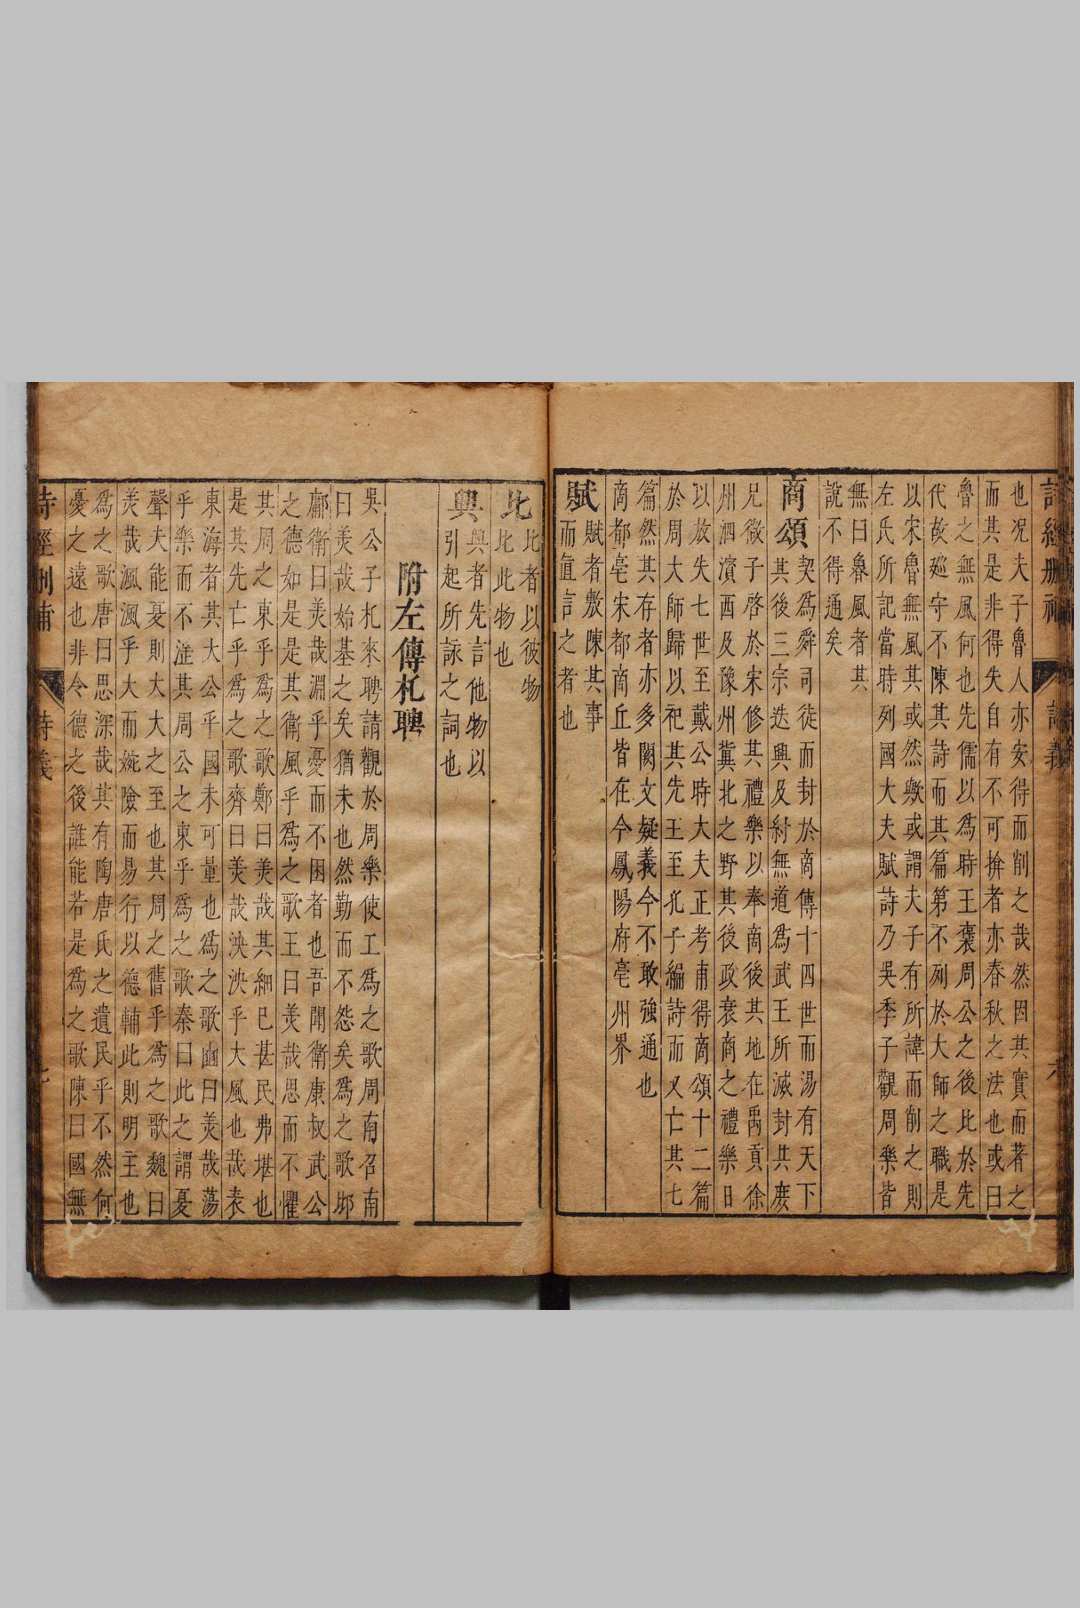 詩經刪補
詩義
六
也况夫子魯人亦安得而削之哉然因其實而著之
而其是非得失自有不可揜者亦春秋之法也或曰
魯之無風何也先儒以爲時王褒周公之後比於先
代故廵守不陳其詩而其篇第不列於大師之職是
以宋魯無風其或然歟或謂夫子有所諱而削之則
左氏所記當時列國大夫賦詩乃吳季子觀周樂皆
無曰魯風者其
說不得通矣
商頌
契爲舜司徒而封於商傳十四世而湯有天下
其後三宗迭興及紂無道爲武王所滅封其庶
兄微子啓於宋修其禮樂以奉商後其地在禹貢徐
州泗濵西及豫州冀北之野其後政衰商之禮樂日
以放失七世至戴公時大夫正考甫得商頌十二篇
於周大師歸以祀其先王至孔子編詩而又亡其七
篇然其存者亦多闕文疑義今不敢強通也
商都亳宋都商丘皆在今鳳陽府亳州界
賦
賦者敷陳其事
而直言之者也
比
比者以彼物
比此物也
興
興者先言他物以
引起所詠之詞也
附左傳札聘
吳公子札來聘請觀於周樂使工爲之歌周南召南
曰羙哉始基之矣猶未也然勤而不怨矣爲之歌邶
鄘衛曰羙哉淵乎憂而不困者也吾聞衛康叔武公
之德如是是其衛風乎爲之歌王曰羙哉思而不懼
其周之東乎爲之歌鄭曰羙哉其細已甚民弗堪也
是其先亡乎爲之歌齊曰羙哉泱泱乎大風也哉表
東海者其大公乎國未可量也爲之歌豳曰羙哉蕩
乎樂而不淫其周公之東乎爲之歌秦曰此之謂憂
聲夫能憂則大大之至也其周之舊乎爲之歌魏曰
羙哉渢渢乎大而婉險而易行以德輔此則明主也
爲之歌唐曰思深哉其有陶唐氏之遺民乎不然何
憂之遠也非令德之後誰能若是爲之歌陳曰國無
詩經刪補
詩義
七